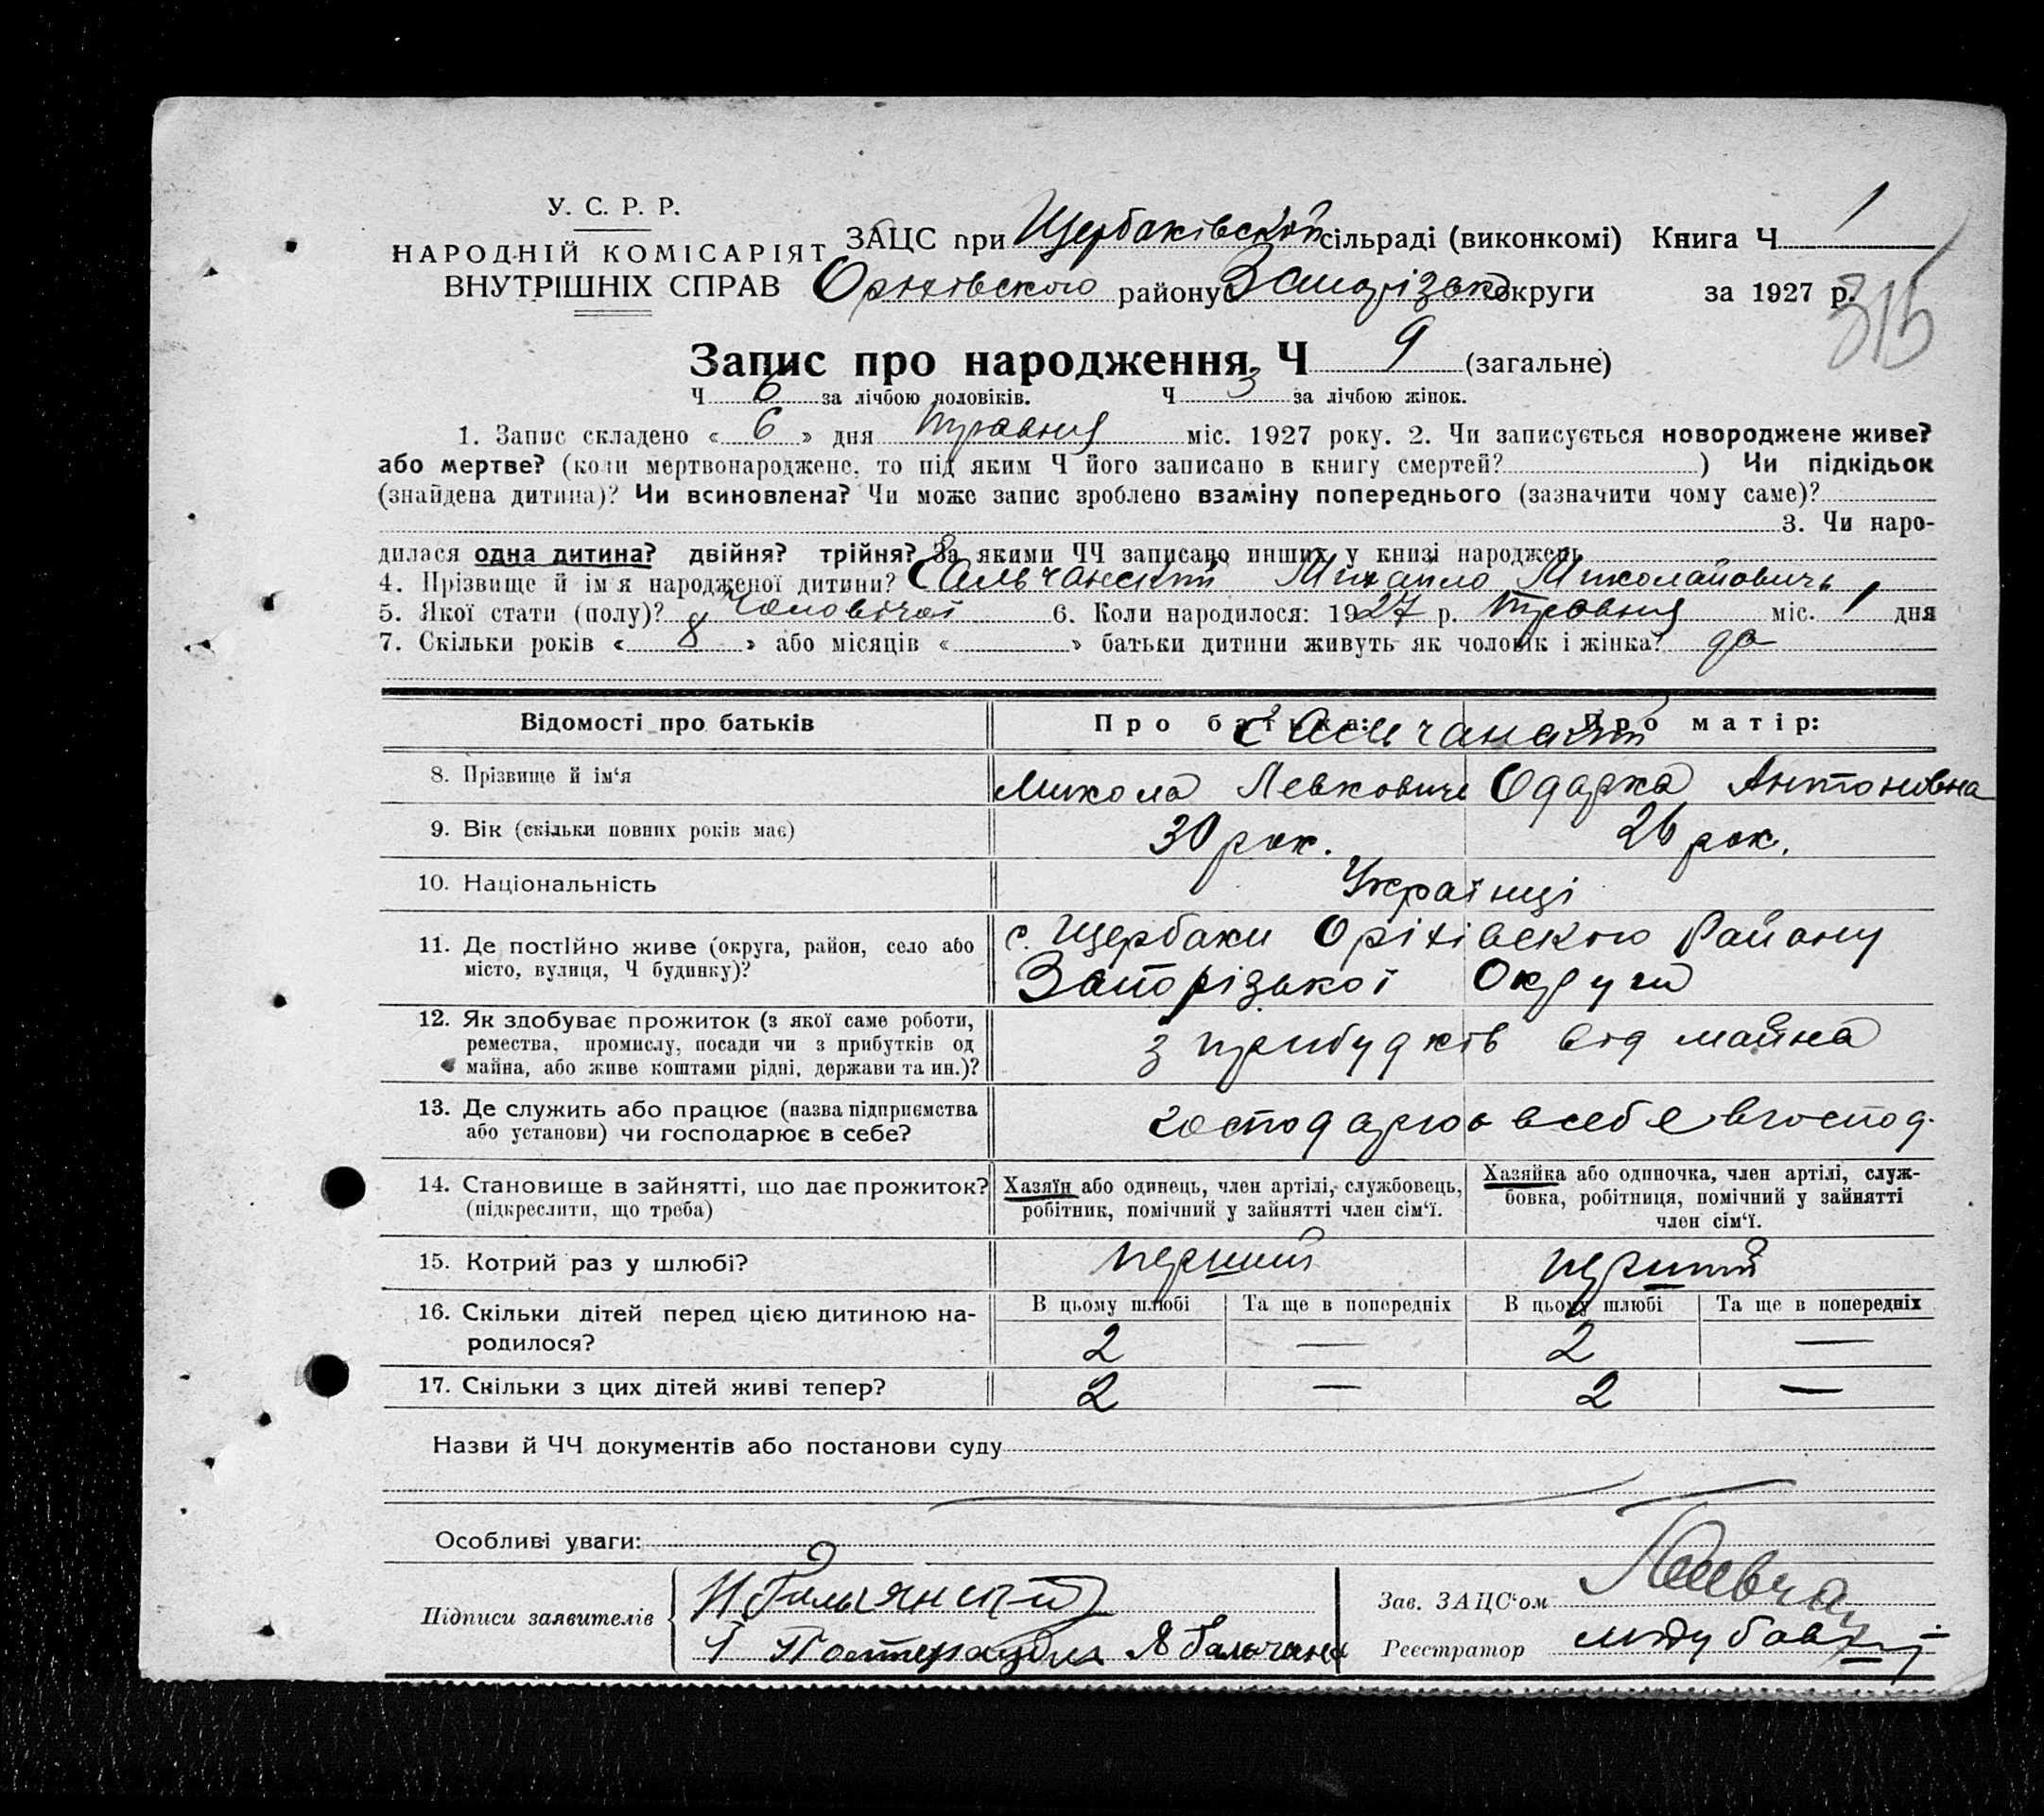 У. С. Р. Р.
НАРОДНІЙ КОМІСАРІЯТ
ВНУТРІШНІХ СПРАВ
ЗАЦС при Щербаківской сільраді (виконкомі) Книга Ч 1
Оріхівского району Запорізьк округи за 1927 р.
315
Запис про народження Ч 9 (загальне)
Ч 6 за лічбою чоловіків. Ч 3 за лічбою жінок.
1. Запис складено « 6 » дня травня міс. 1927 року. 2. Чи записується новороджене живе?
або мертве? (коли мертвонароджене, то під яким Ч його записано в книгу смертей? ) Чи підкідьок
(знайдена дитина)? Чи всиновлена? Чи може запис зроблено взаміну попереднього (зазначити чому саме)?
3. Чи наро-
дилася одна дитина? двійня? трійня? За якими ЧЧ записано инших у книзі народжень
4. Прізвище й ім'я народженої дитини? Сальчанский Михайло Миколайовичь
5. Якої стати (полу)? Чоловічої 6. Коли народилося: 1927 р. травня міс. 1 дня
7. Скільки років « 8 » або місяців « » батьки дитини живуть як чоловік і жінка? да
Відомості про батьків Про батька: Про матір:
Сальчанскій
8. Прізвище й ім'я Микола Левкович Одарка Антонивна
9. Вік (скільки повних років має) 30 рок. 26 рок.
10. Національність Українці
11. Де постійно живе (округа, район, село або с. Щербаки Оріхівского Району
місто, вулиця, Ч будинку)? Запорізької Округи
12. Як здобуває прожиток (з якої саме роботи,
ремества, промислу, посади чи з прибутків од з прибудків від майна
майна, або живе коштами рідні, держави та ин.)?
13. Де служить або працює (назва підприємства
або установи) чи господарює в себе? господарює в себе в господ.
14. Становище в зайнятті, що дає прожиток? Хазяїн або одинець, член артілі, службовець, Хазяйка або одиночка, член артілі, служ-
(підкреслити, що треба) робітник, помічний у зайнятті член сім'ї. бовка, робітниця, помічний у зайнятті
член сім'ї.
15. Котрий раз у шлюбі? перший перший
16. Скільки дітей перед цією дитиною на- В цьому шлюбі Та ще в попередніх В цьому шлюбі Та ще в попередніх
родилося? 2 — 2 —
17. Скільки з цих дітей живі тепер? 2 — 2 —
Назви й ЧЧ документів або постанови суду
Особливі уваги:
Підписи заявителів
Зав. ЗАЦС'ом
Реєстратор